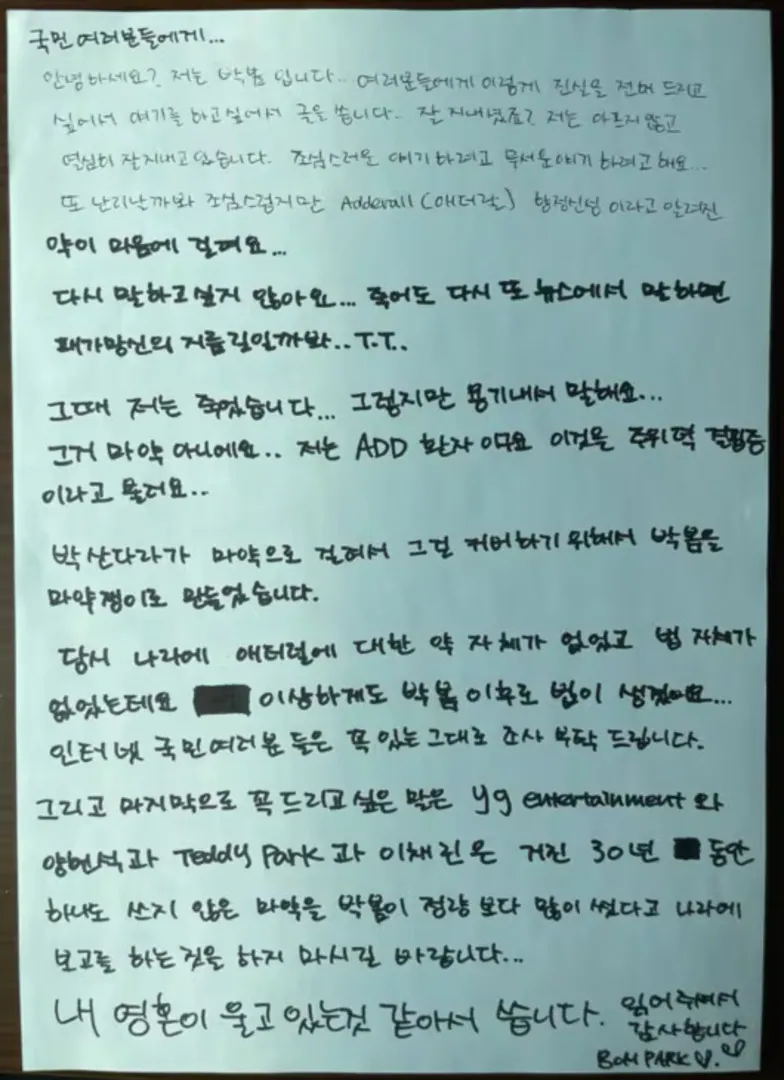 국민 여러분들에게...
안녕하세요? 저는 박봄 입니다.. 여러분들에게 이렇게 진실을 전해 드리고
싶어서 얘기를 하고싶어서 글을 씁니다.. 잘 지내셨죠? 저는 아프지 않고
열심히 잘지내고 있습니다. 조심스러운 얘기 하려고 무서운얘기 하려고 해요...
또 난리날까봐 조심스럽지만 Adderall (애더랄) 향정신성 이라고 알려진
약이 마음에 걸려요...
다시 말하고싶지 않아요... 죽어도 다시 또 뉴스에서 말하면
패가망신의 지름길일까봐.. T.T..
그때 저는 죽었습니다... 그렇지만 용기내서 말해요...
그거 마약 아니에요.. 저는 ADD 환자 이구요 이것은 주위력 결핍증
이라고 불려요..
박산다라가 마약으로 걸려서 그걸 커버하기 위해서 박봄을
마약쟁이로 만들었습니다.
당시 나라에 애터럴에 대한 약 자체가 없었고 법 자체가
없었는데요 이상하게도 박봄 이후로 법이 생겼어요...
인터넷 국민여러분 들은 꼭 있는그대로 조사 부탁 드립니다.
그리고 마지막으로 꼭 드리고 싶은 말은 yg entertainment 와
양현석과 Teddy Park 과 이채린은 거진 30년 동안
하나도 쓰지 않은 마약을 박봄이 정량 보다 많이 썼다고 나라에
보고를 하는 것을 하지 마시길 바랍니다...
내 영혼이 울고 있는것 같아서 씁니다. 읽어주셔서
감사합니다
BOM PARK ♡. ♡